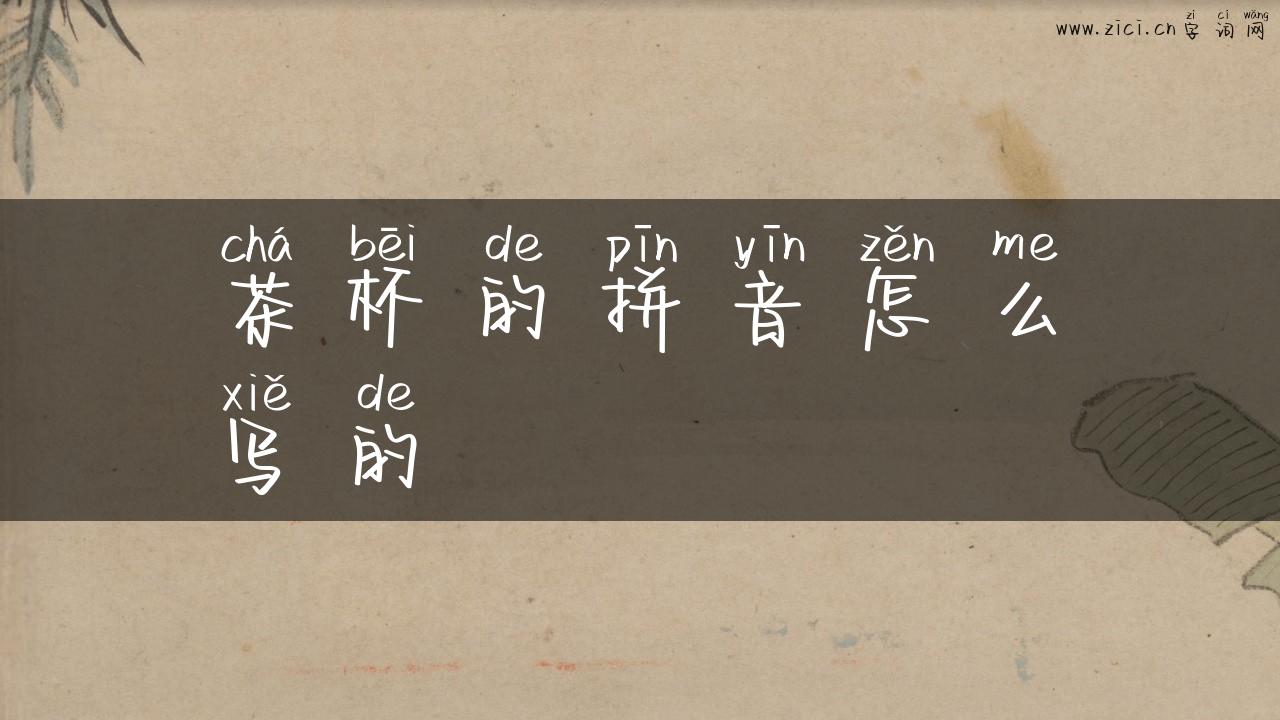 zì cí wǎng
www.zici.cn 字词网
chá bēi de pīn yīn zěn me
茶杯的拼音怎么
xiě de
写的